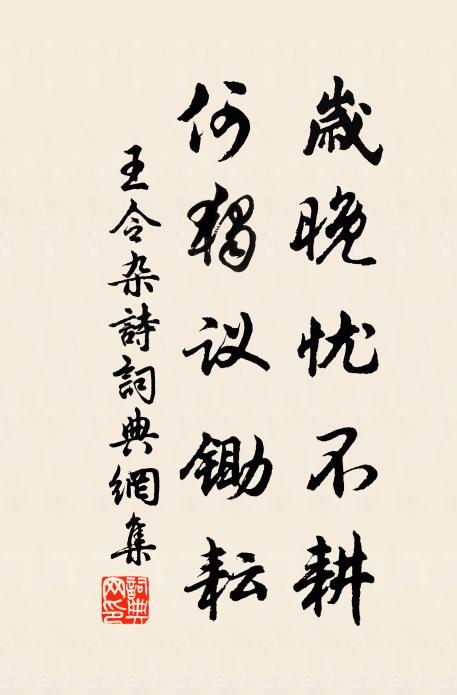 歲晚忧不耕
何獨议鋤耘
王令杂詩詞典網集
詞典网印